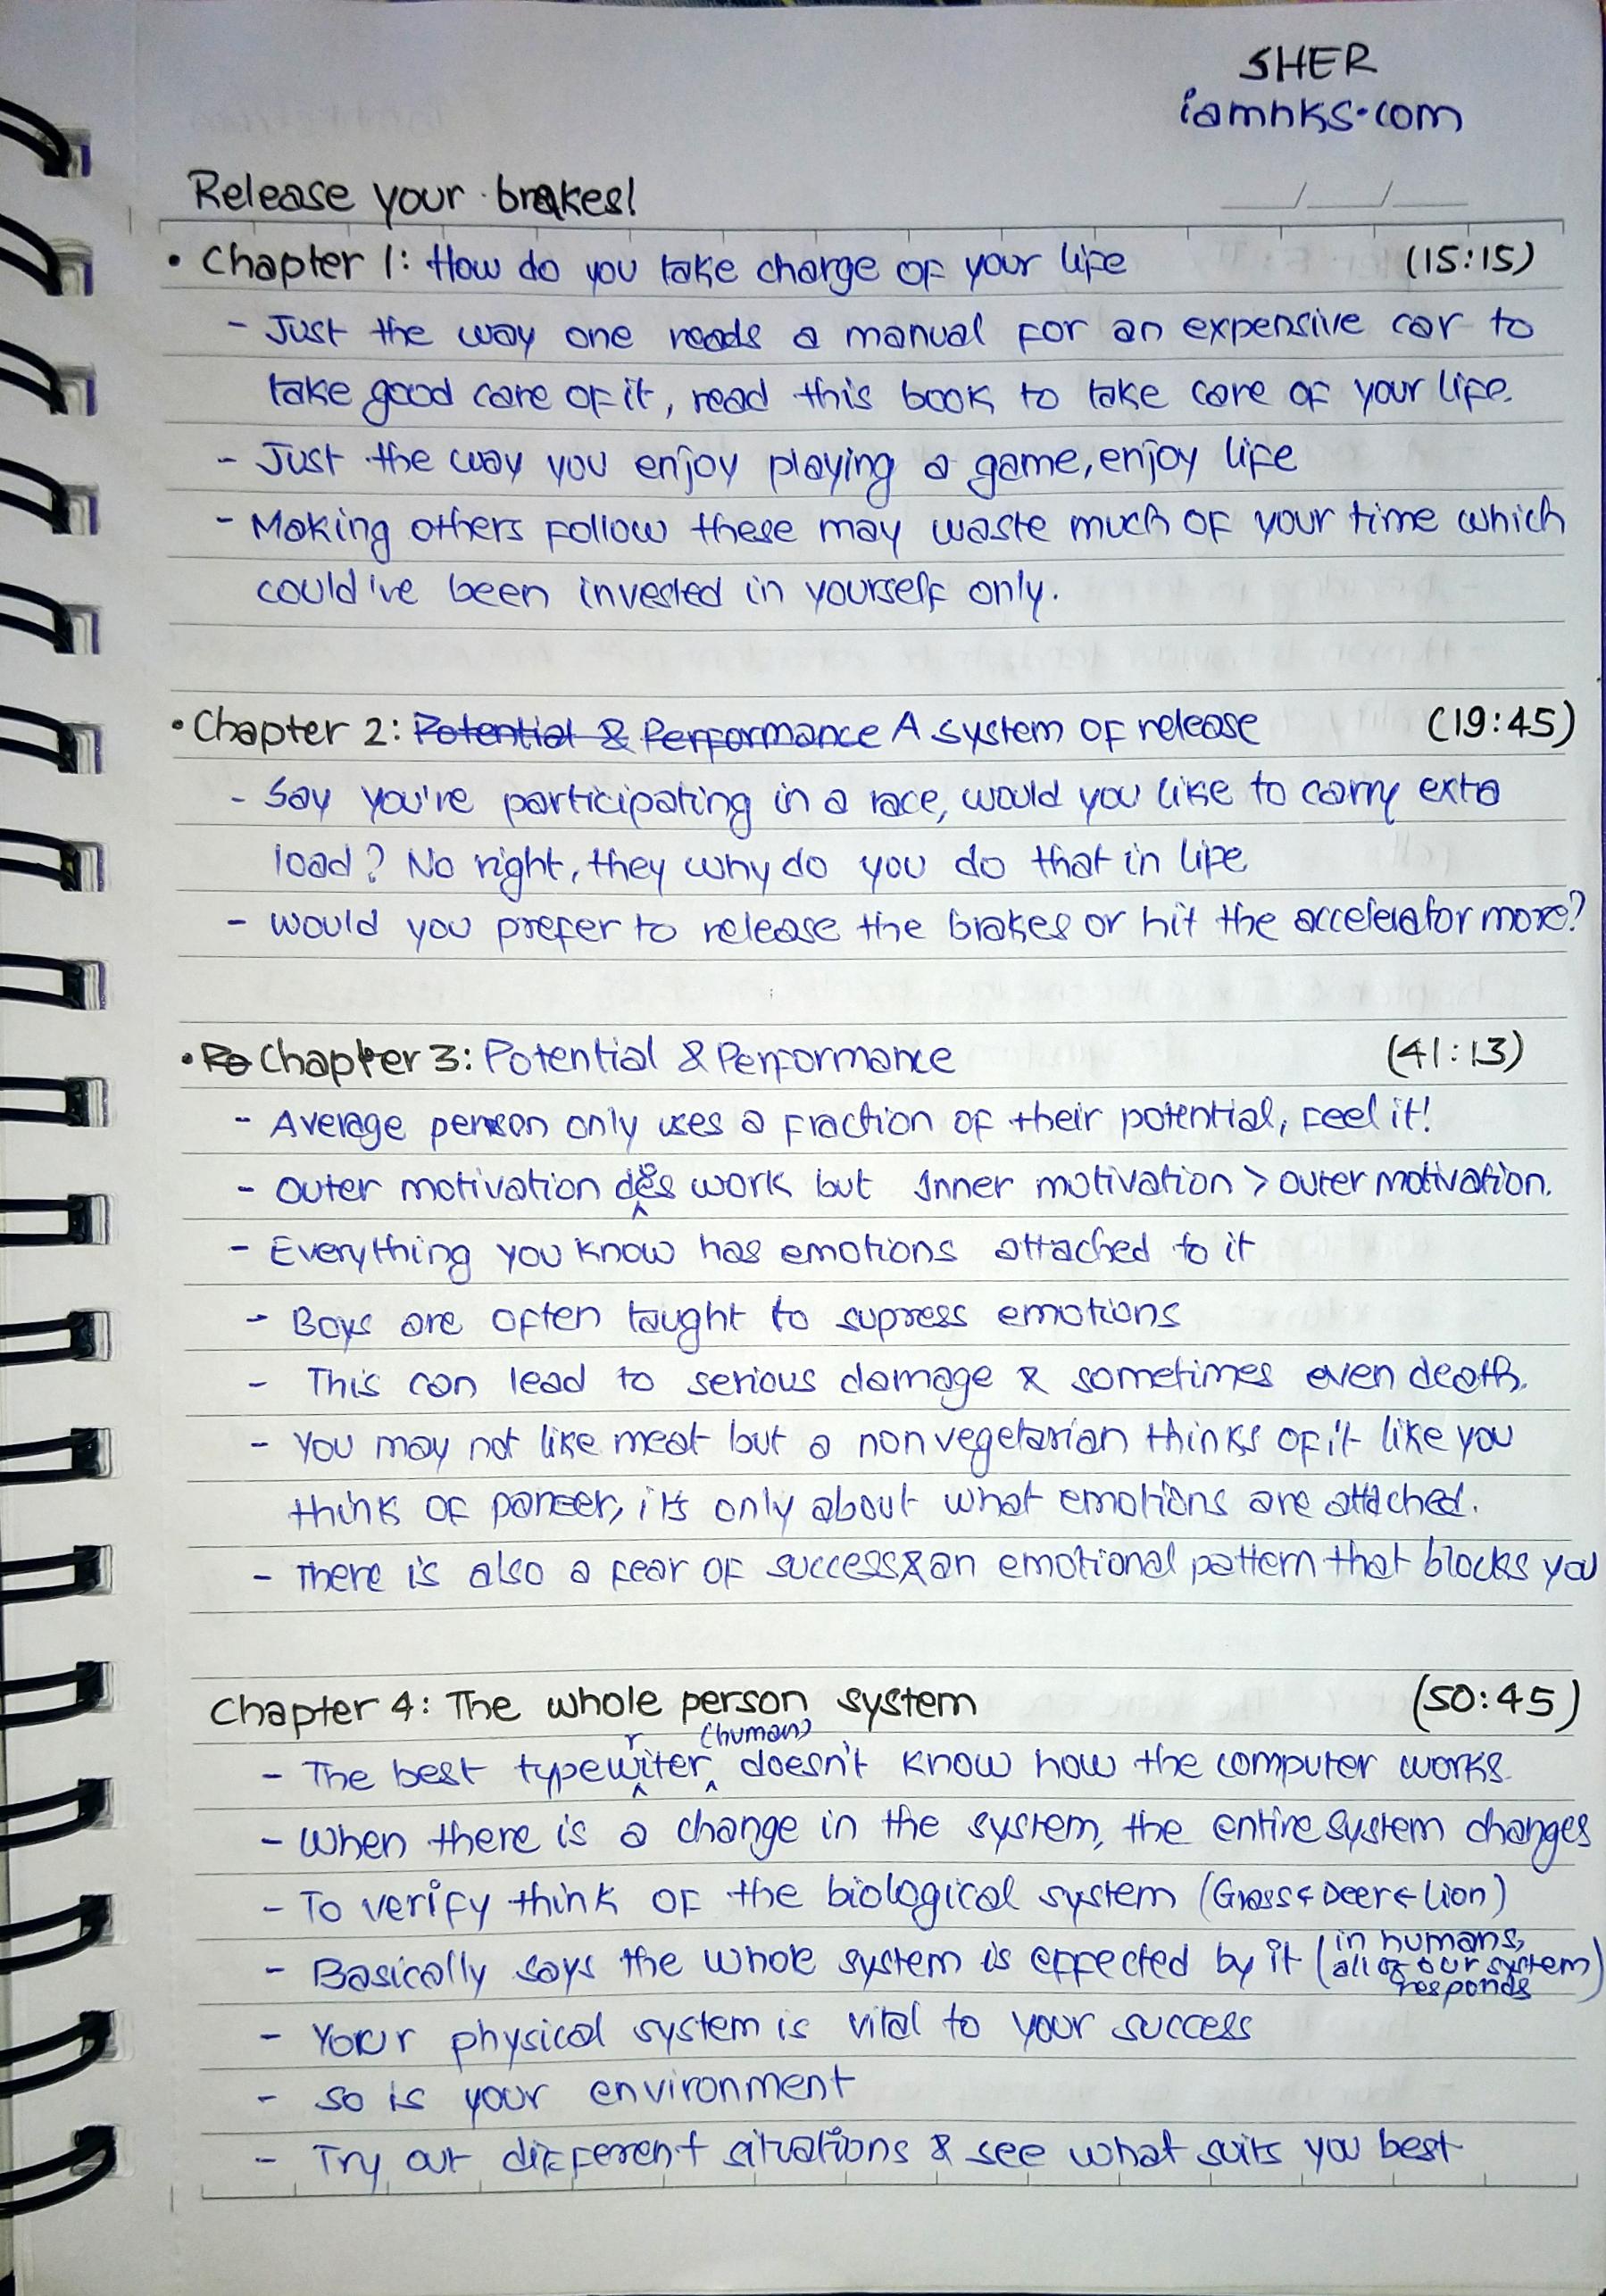 SHER
iamnks.com
Release your brakes!
__/__/__
• Chapter 1: How do you take charge of your life (15:15)
- Just the way one reads a manual for an expensive car to
take good care of it, read this book to take care of your life.
- Just the way you enjoy playing a game, enjoy life
- Making others follow these may waste much of your time which
could've been invested in yourself only.
• Chapter 2: Potential & Performance A system of release (19:45)
- Say you're participating in a race, would you like to carry exta
load? No right, they why do you do that in life
- would you prefer to release the brakes or hit the accelerator more?
• Po Chapter 3: Potential & Performance (41:13)
- Average person only uses a fraction of their potential, feel it!
- Outer motivation does work but Inner motivation > outer motivation.
- Everything you know has emotions attached to it
- Boys are often taught to supress emotions
- This can lead to serious damage & sometimes even death.
- You may not like meat but a non vegetarian thinks of it like you
think of paneer, it's only about what emotions are attached.
- There is also a fear of success & an emotional pattern that blocks you
Chapter 4: The whole person system (50:45)
- The best typewriter (human) doesn't know how the computer works.
- When there is a change in the system, the entire system changes
- To verify think of the biological system (Grass ← Deer ← Lion)
- Basically says the whole system is effected by it (in humans, all of our system responds)
- Your physical system is vital to your success
- so is your environment
- Try out different situations & see what suits you best